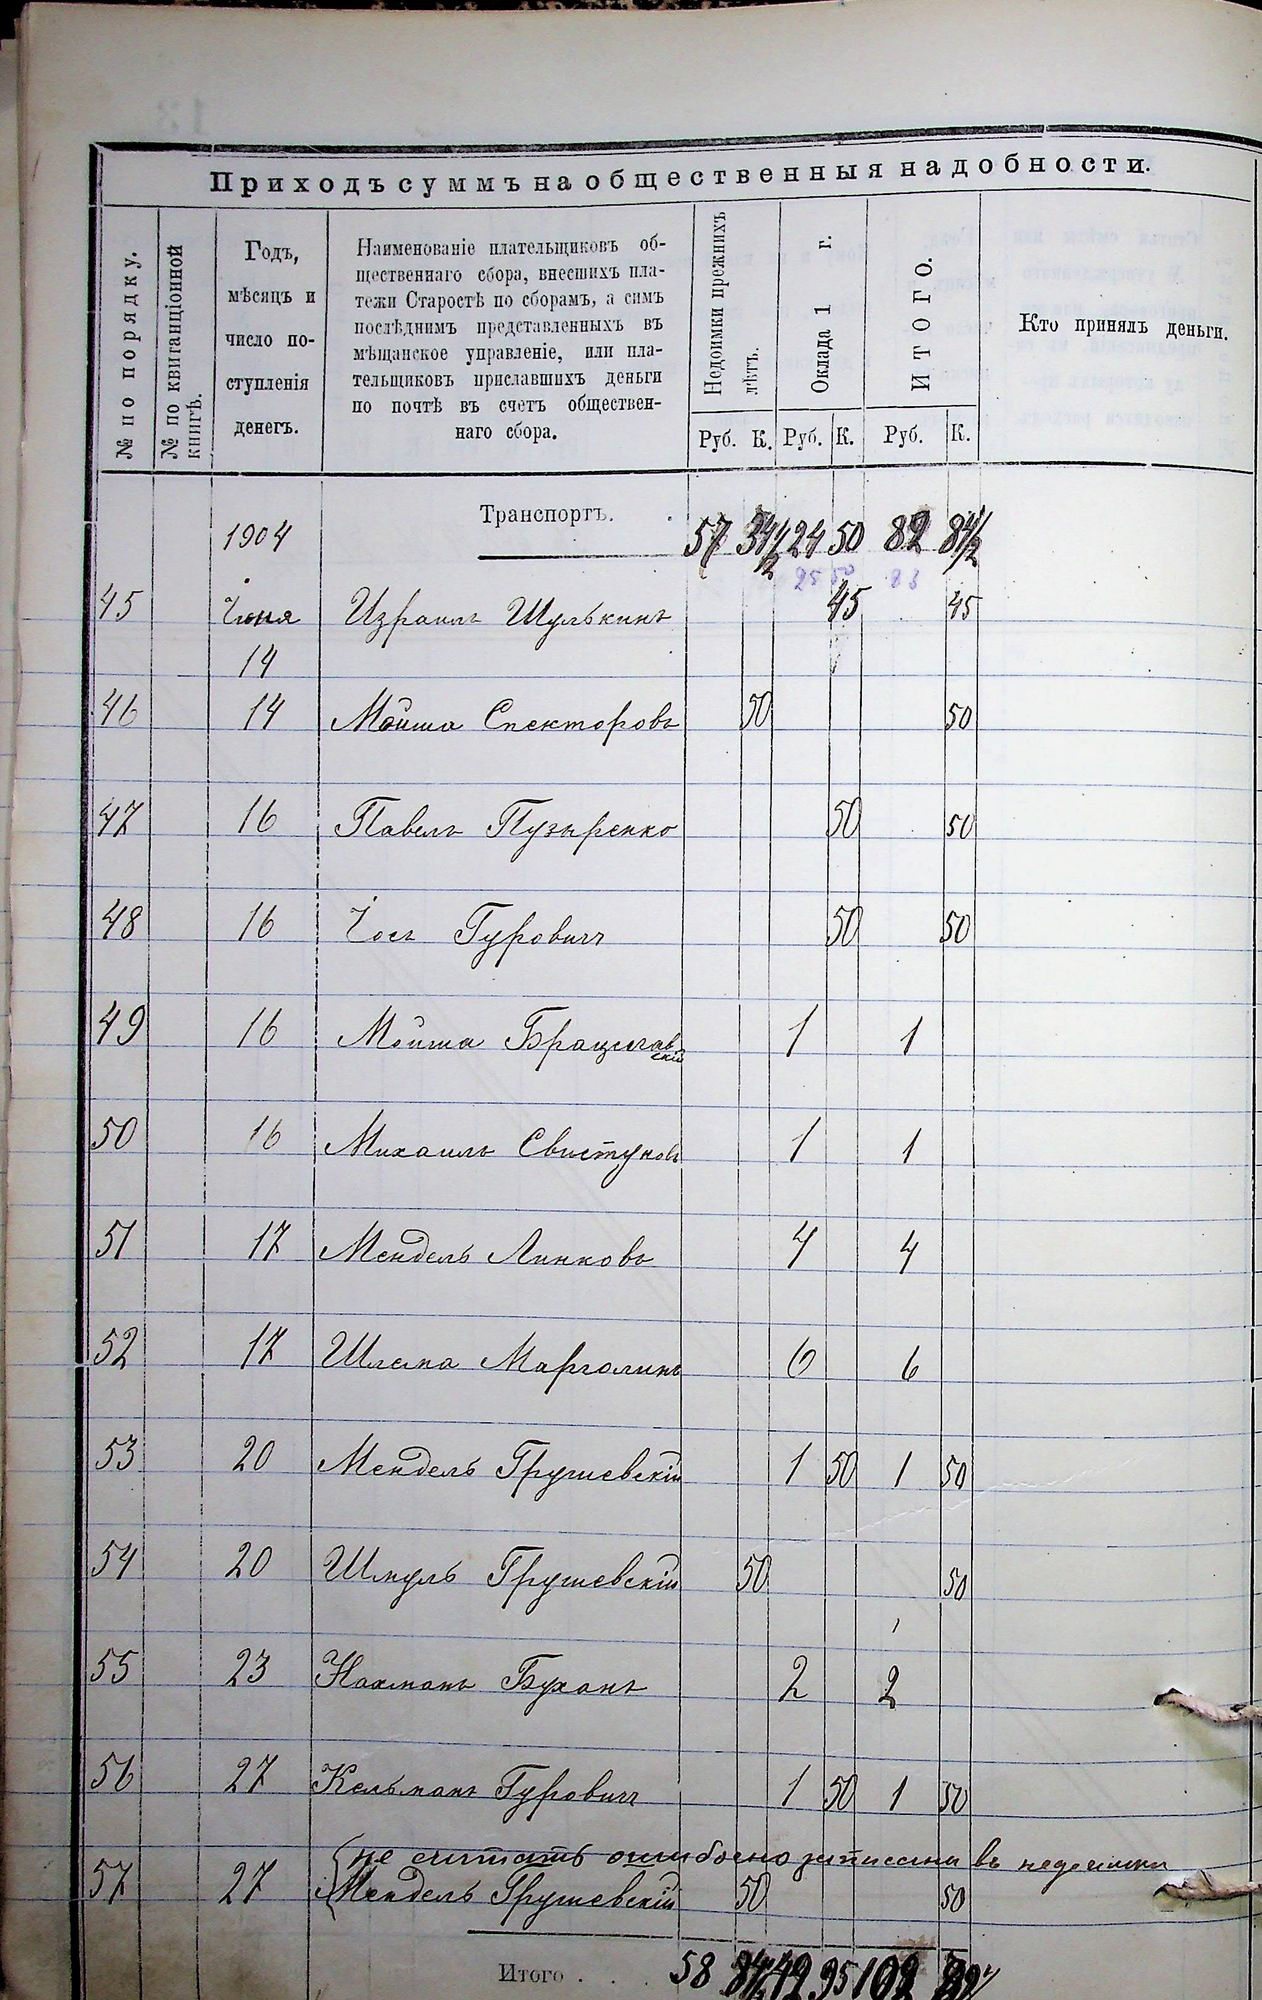 Приходъ суммъ на общественныя надобности.
№ по порядку.
№ по квитанціонной
книгѣ.
Годъ,
мѣсяцъ и
число по-
ступленія
денегъ.
Наименованіе плательщиковъ об-
щественнаго сбора, внесшихъ пла-
тежи Старостѣ по сборамъ, а симъ
послѣднимъ представленныхъ въ
мѣщанское управленіе, или пла-
тельщиковъ приславшихъ деньги
по почтѣ въ счетъ обществен-
наго сбора.
Недоимки прежнихъ
лѣтъ.
Оклада 1 г.
Итого.
Кто принялъ деньги.
Руб. К. Руб. К. Руб. К.
1904 Транспортъ. 57 24 50 82
25 50 83
45 Іюня Израиль Шулькинъ 45 45
14
46 14 Мойша Спекторовъ 50 50
47 16 Павелъ Пузыренко 50 50
48 16 Іось Гуровичъ 50 50
49 16 Мойша Брацлав 1 1
скій
50 16 Михаилъ Свистуновъ 1 1
51 17 Мендель Линковъ 4 4
52 17 Шлема Марголинъ 6 6
53 20 Мендель Грушевскій 1 50 1 50
54 20 Шмуль Грушевскій 50 50
55 23 Нахманъ Буханъ 2 2
56 27 Кельманъ Гуровичъ 1 50 1 50
не считать ошибочно записана въ недоимки
57 27 Мендель Грушевскій 50 50
Итого . . . 58 95 102